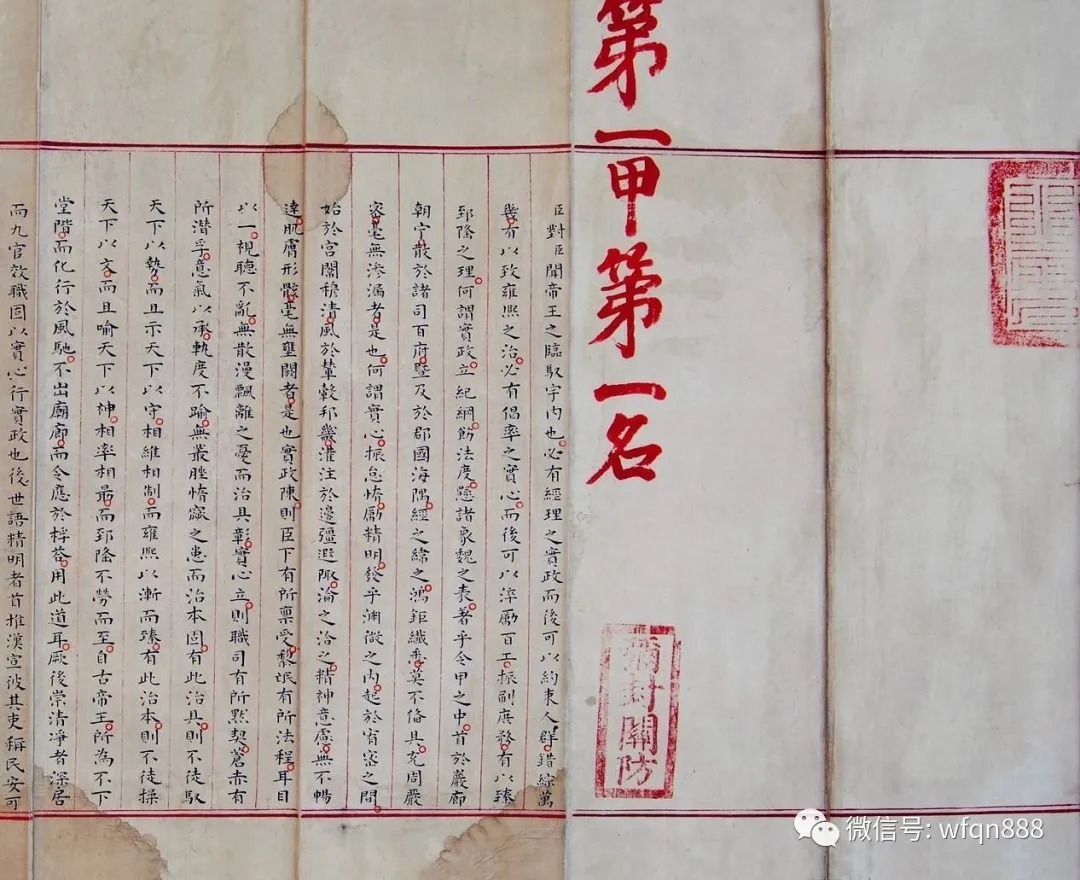 第一甲第一名
彌封關防
臣對臣聞帝王之臨馭宇內也必有經理之實政而後可以約束人群錯綜萬
幾有以致雍熙之治必有倡率之實心而後可以淬勵百工振刷庶務有以臻
郅隆之理何謂實政立紀綱飭法度懸諸象魏之表著乎令甲之中首於巖廊
朝宁散於諸司百府暨及於郡國海隅經之緯之鴻鉅纖悉莫不備具充周嚴
密毫無滲漏者是也何謂實心振怠惰勵精明發乎淵微之內起於宥密之間
始於宮闈穆清風於輦轂邦畿灌注於邊疆遐陬淪之洽之精神意慮無不暢
達肌膚形骸毫無壅閼者是也實政陳則臣下有所稟受黎氓有所法程耳目
以一視聽不亂無散漫飄離之憂而治具彰實心立則職司有所默契蒼赤有
所潛孚意氣以承軌度不踰無叢脞惰窳之患而治本固有此治具則不徒馭
天下以勢而且示天下以守相維相制而雍熙以漸而臻有此治本則不徒操
天下以文而且喻天下以神相率相最而郅隆不勞而至自古帝王所為不下
堂階而化行於風馳不出廟廊而令應於桴答用此道耳厥後崇清凈者深居
而九官效職固以實心行實政也後世語精明者首推漢宣彼其吏稱民安可
微信号: wfqn888